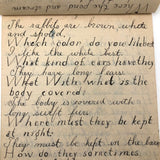 The rabbits are brown white
and spotted.
Which color do you like best
I like the white best.
What kind of ears have they
They have long ears.
With what is the
body covered?
The body is covered with
long soft fur.
Where must they be kept
at night
They must be kept in the
How do they sometimes